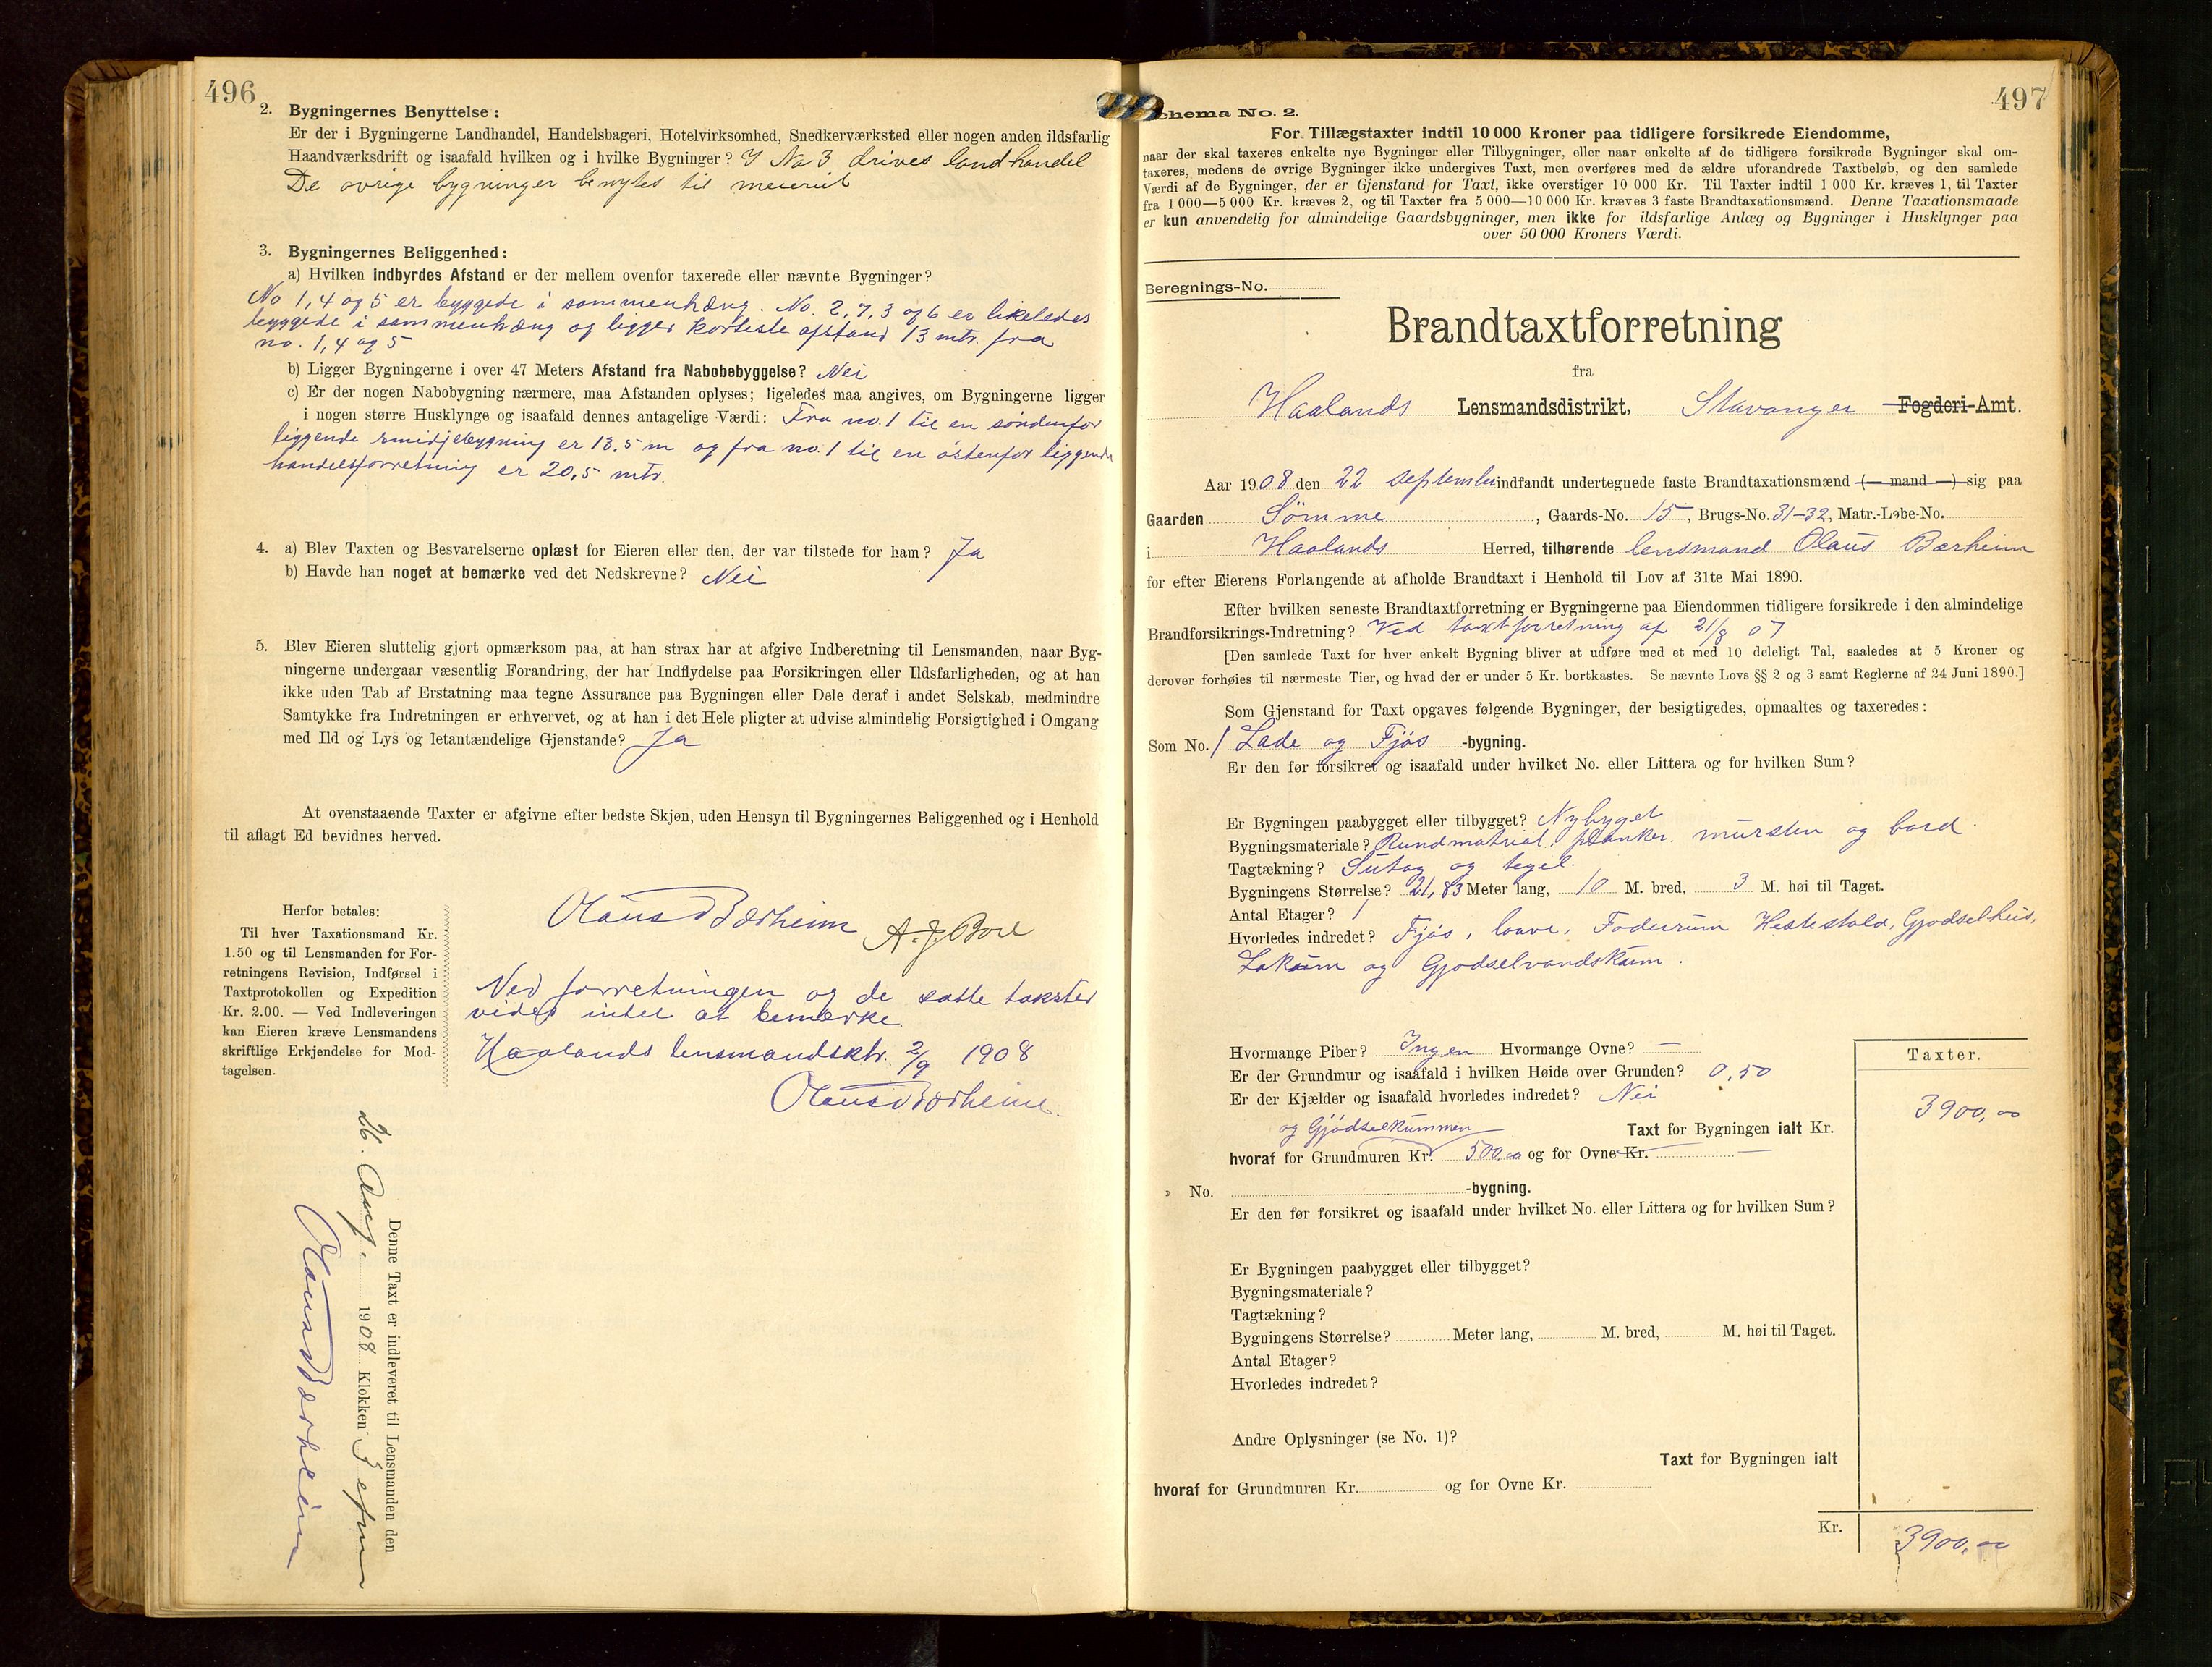 496
2. Bygningernes Benyttelse:
Er der i Bygningerne Landhandel, Handelsbageri, Hotelvirksomhed, Snedkerværksted eller nogen anden ildsfarlig
Haandværksdrift og isaafald hvilken og i hvilke Bygninger? I No 3 drives landhandel
De øvrige bygninger benyttes til meieriet
3. Bygningernes Beliggenhed:
a) Hvilken indbyrdes Afstand er der mellem ovenfor taxerede eller nævnte Bygninger?
No 1, 4 og 5 er byggede i sammenhæng. No. 2, 7, 3 og 6 er likeledes
byggede i sammenhæng og ligger korteste afstand 13 mtr. fra
no. 1, 4 og 5
b) Ligger Bygningerne i over 47 Meters Afstand fra Nabobebyggelse? Nei
c) Er der nogen Nabobygning nærmere, maa Afstanden oplyses; ligeledes maa angives, om Bygningerne ligger
i nogen større Husklynge og isaafald dennes antagelige Værdi: Fra no. 1 til en søndenfor
liggende smidjebygning er 13,5 m og fra no. 1 til en østenfor liggende
handelsforretning er 20,5 mtr.
4. a) Blev Taxten og Besvarelserne oplæst for Eieren eller den, der var tilstede for ham? Ja
b) Havde han noget at bemærke ved det Nedskrevne? Nei
5. Blev Eieren sluttelig gjort opmærksom paa, at han strax har at afgive Indberetning til Lensmanden, naar Byg-
ningerne undergaar væsentlig Forandring, der har Indflydelse paa Forsikringen eller Ildsfarligheden, og at han
ikke uden Tab af Erstatning maa tegne Assurance paa Bygningen eller Dele deraf i andet Selskab, medmindre
Samtykke fra Indretningen er erhvervet, og at han i det Hele pligter at udvise almindelig Forsigtighed i Omgang
med Ild og Lys og letantændelige Gjenstande? Ja
At ovenstaaende Taxter er afgivne efter bedste Skjøn, uden Hensyn til Bygningernes Beliggenhed og i Henhold
til aflagt Ed bevidnes herved.
Olaus Bærheim A. J. Boe
Herfor betales:
Til hver Taxationsmand Kr.
1.50 og til Lensmanden for For-
retningens Revision, Indførsel i
Taxtprotokollen og Expedition
Kr. 2.00. — Ved Indleveringen
kan Eieren kræve Lensmandens
skriftlige Erkjendelse for Mod-
tagelsen.
Ved forretningen og de satte takster
vides intet at bemærke.
Haalands lensmandsktr. 2/9 1908
Olaus Bærheim.
Denne Taxt er indleveret til Lensmanden den
26. Aug. 1908 Klokken 3 efm
Olaus Bærheim
497
chema No. 2.
For Tillægstaxter indtil 10 000 Kroner paa tidligere forsikrede Eiendomme,
naar der skal taxeres enkelte nye Bygninger eller Tilbygninger, eller naar enkelte af de tidligere forsikrede Bygninger skal om-
taxeres, medens de øvrige Bygninger ikke undergives Taxt, men overføres med de ældre uforandrede Taxtbeløb, og den samlede
Værdi af de Bygninger, der er Gjenstand for Taxt, ikke overstiger 10 000 Kr. Til Taxter indtil 1 000 Kr. kræves 1, til Taxter
fra 1 000—5 000 Kr. kræves 2, og til Taxter fra 5 000—10 000 Kr. kræves 3 faste Brandtaxationsmænd. Denne Taxationsmaade
er kun anvendelig for almindelige Gaardsbygninger, men ikke for ildsfarlige Anlæg og Bygninger i Husklynger paa
over 50 000 Kroners Værdi.
Beregnings-No.
Brandtaxtforretning
fra
Haalands Lensmandsdistrikt, Stavanger Fogderi-Amt.
Aar 1908 den 22 september indfandt undertegnede faste Brandtaxationsmænd (— mand —) sig paa
Gaarden Sömme, Gaards-No. 15, Brugs-No. 31-32, Matr.-Løbe-No.
i Haalands Herred, tilhørende lensmand Olaus Bærheim
for efter Eierens Forlangende at afholde Brandtaxt i Henhold til Lov af 31te Mai 1890.
Efter hvilken seneste Brandtaxtforretning er Bygningerne paa Eiendommen tidligere forsikrede i den almindelige
Brandforsikrings-Indretning? Ved taxtforretning af 21/8 07
[Den samlede Taxt for hver enkelt Bygning bliver at udføre med et med 10 deleligt Tal, saaledes at 5 Kroner og
derover forhøies til nærmeste Tier, og hvad der er under 5 Kr. bortkastes. Se nævnte Lovs §§ 2 og 3 samt Reglerne af 24 Juni 1890.]
Som Gjenstand for Taxt opgaves følgende Bygninger, der besigtigedes, opmaaltes og taxeredes:
Som No. 1 Lade og Fjøs -bygning.
Er den før forsikret og isaafald under hvilket No. eller Littera og for hvilken Sum?
Er Bygningen paabygget eller tilbygget? Nybyget
Bygningsmateriale? Rundmatrial, planker, mursten og bord.
Tagtækning? Sutag og tegel.
Bygningens Størrelse? 21,83 Meter lang, 10 M. bred, 3 M. høi til Taget.
Antal Etager? 1
Hvorledes indredet? Fjøs, laave, Foderrum Hestestald, Gjødselhus,
Lakum og Gjødselvandskum.
Hvormange Piber? Ingen Hvormange Ovne? —
Er der Grundmur og isaafald i hvilken Høide over Grunden? 0,50
Er der Kjælder og isaafald hvorledes indredet? Nei
Taxter.
3900,00
og Gjødselkummen Taxt for Bygningen ialt Kr.
hvoraf for Grundmuren Kr. 500,00 og for Ovne Kr. —
» No. -bygning.
Er den før forsikret og isaafald under hvilket No. eller Littera og for hvilken Sum?
Er Bygningen paabygget eller tilbygget?
Bygningsmateriale?
Tagtækning?
Bygningens Størrelse? Meter lang, M. bred, M. høi til Taget.
Antal Etager?
Hvorledes indredet?
Andre Oplysninger (se No. 1)?
Taxt for Bygningen ialt
hvoraf for Grundmuren Kr. og for Ovne Kr.
Kr. 3900,00